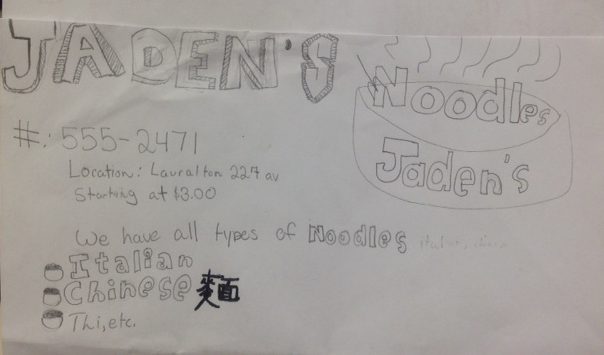 JADEN'S
Noodles
Jaden's
#: 555-2471
Location: Lauralton 227 av
Starting at $3.00
We have all types of Noodles
Italian
Chinese 麵
Thi, etc.